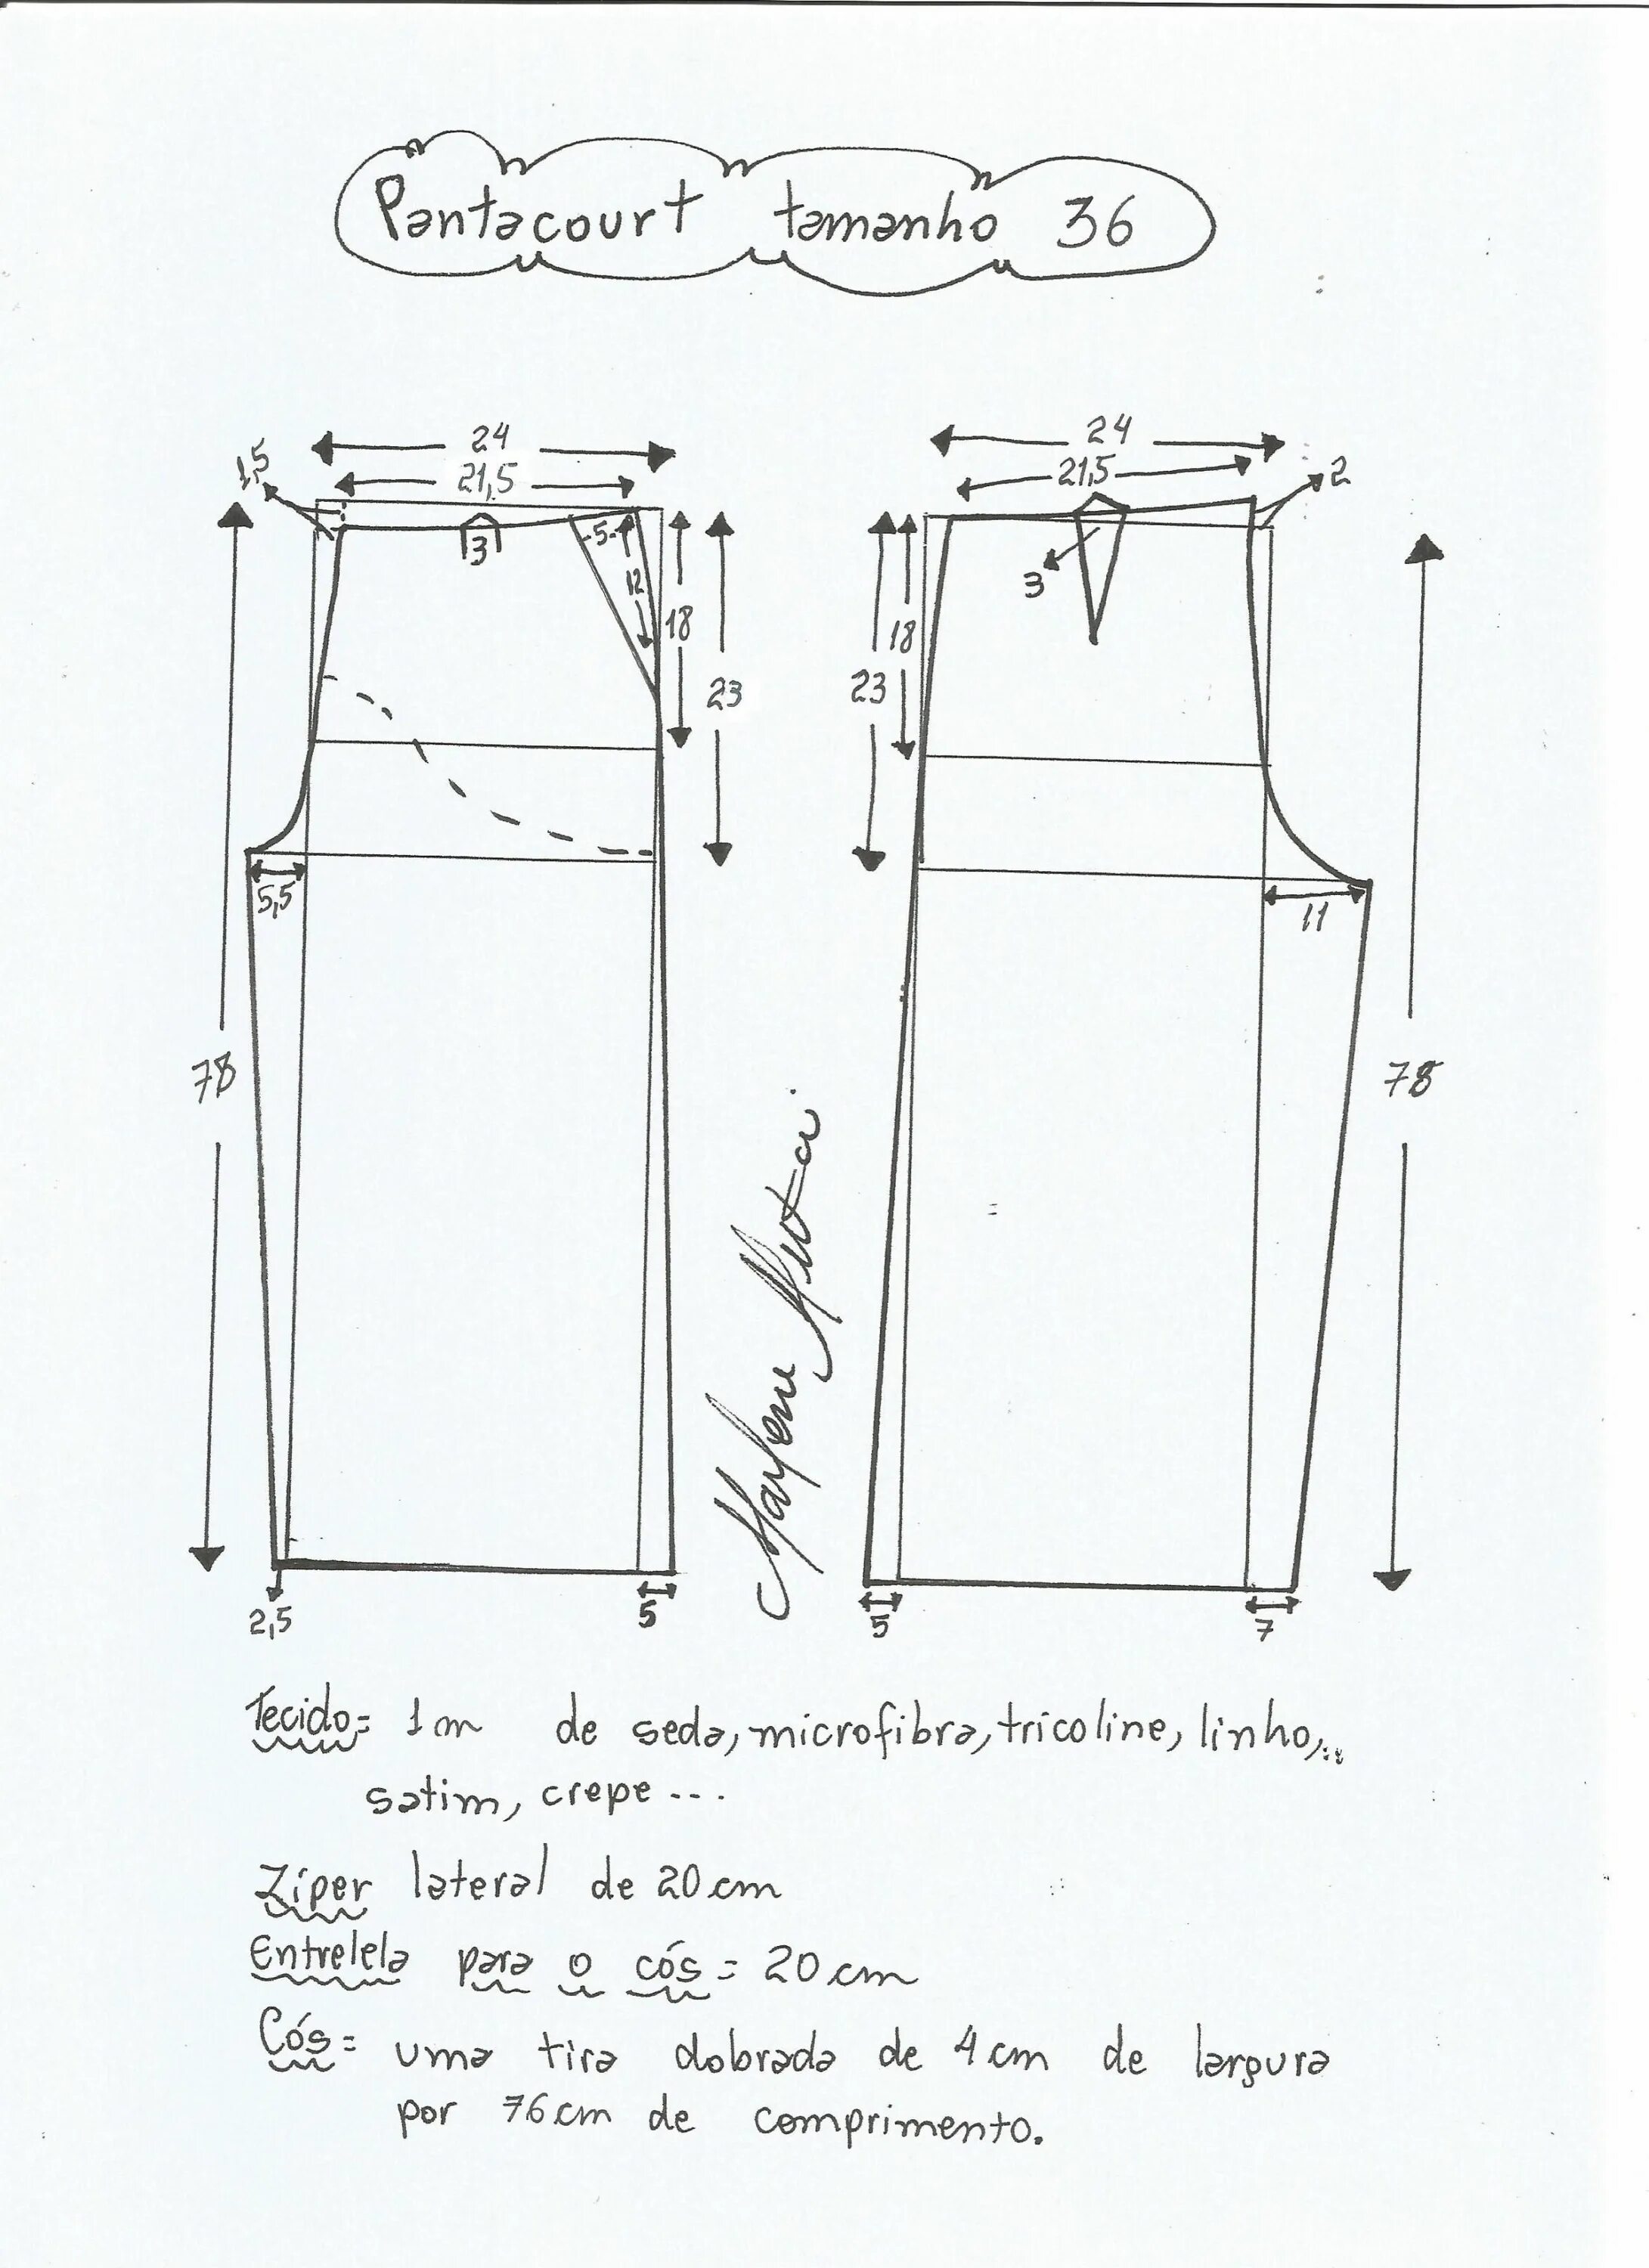 Pantacourt tamanho 36
24
21,5
1,5
3
5
12
18
23
5,5
78
2,5
5
24
21,5
2
3
18
23
11
78
5
7
Marlene Mukai
Tecido= 1m de seda, microfibra, tricoline, linho,..
satim, crepe ...
Zíper lateral de 20cm
Entrelela para o cós = 20cm
Cós= uma tira dobrada de 4cm de largura
por 76cm de comprimento.